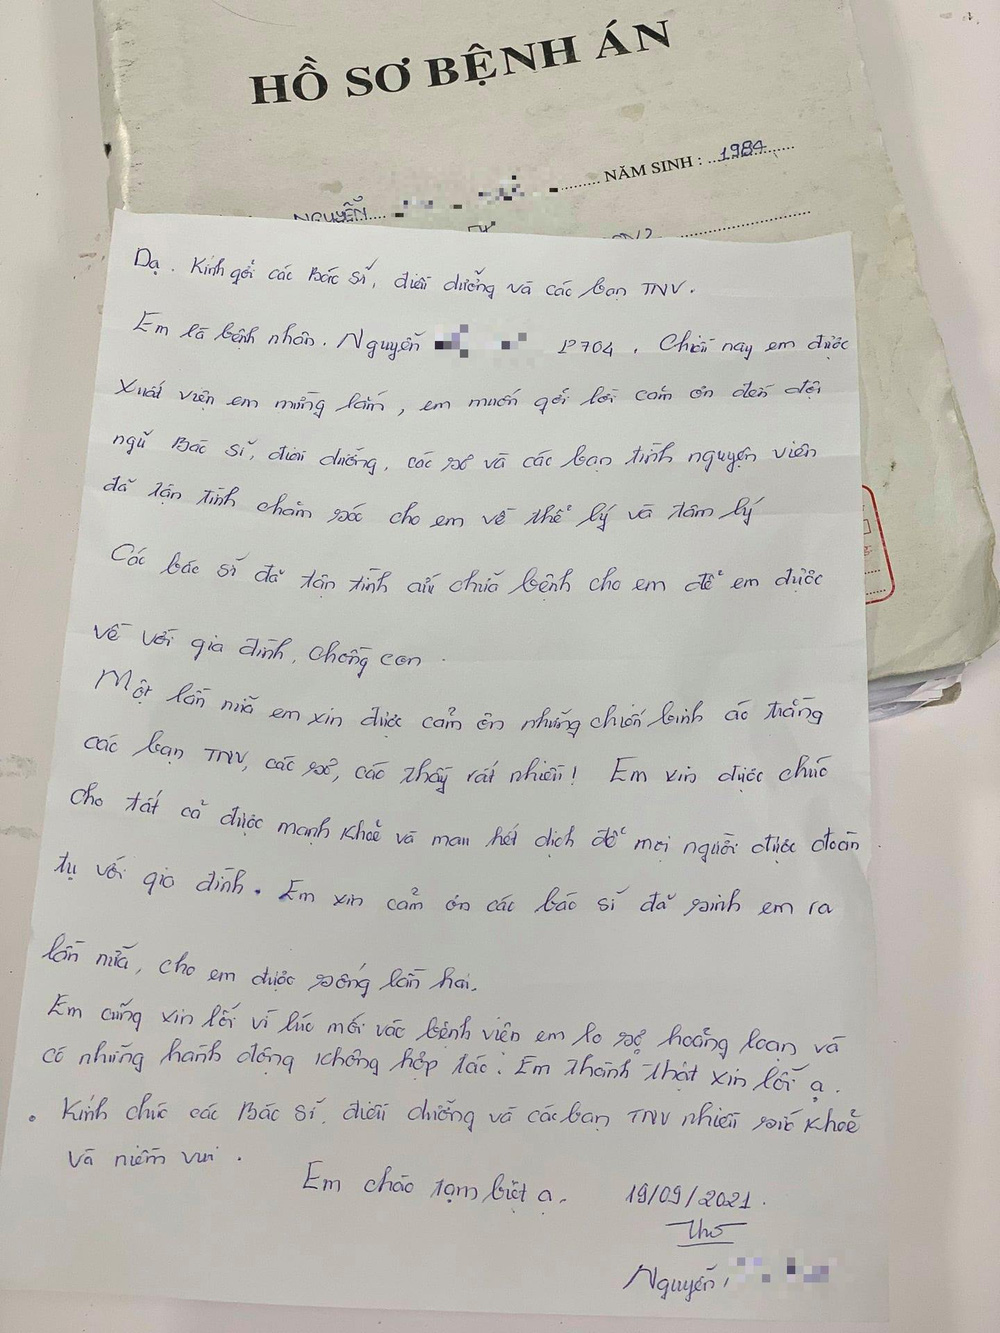 HỒ SƠ BỆNH ÁN
NGUYỄN
NĂM SINH : 1984
Dạ. Kính gởi các Bác sĩ, điều dưỡng và các bạn TNV.
Em là bệnh nhân. Nguyễn P704. Chiều nay em được
xuất viện em mừng lắm, em muốn gởi lời cảm ơn đến đội
ngũ Bác sĩ, điều dưỡng, các sơ và các bạn tình nguyện viên
đã tận tình chăm sóc cho em về thể lý và tâm lý
Các bác sĩ đã tận tình cứu chữa bệnh cho em để em được
về với gia đình, chồng con.
Một lần nữa em xin được cảm ơn những chiến binh áo trắng
các bạn TNV, các sơ, các thầy rất nhiều! Em xin được chúc
cho tất cả được mạnh khoẻ và mau hết dịch để mọi người được đoàn
tụ với gia đình. Em xin cảm ơn các bác sĩ đã sinh em ra
lần nữa, cho em được sống lần hai.
Em cũng xin lỗi vì lúc mới vào bệnh viện em lo sợ hoảng loạn và
có những hành động không hợp tác. Em thành thật xin lỗi ạ.
Kính chúc các Bác sĩ, điều dưỡng và các bạn TNV nhiều sức khoẻ
và niềm vui.
Em chào tạm biệt ạ.
19/09/2021.
Nguyễn